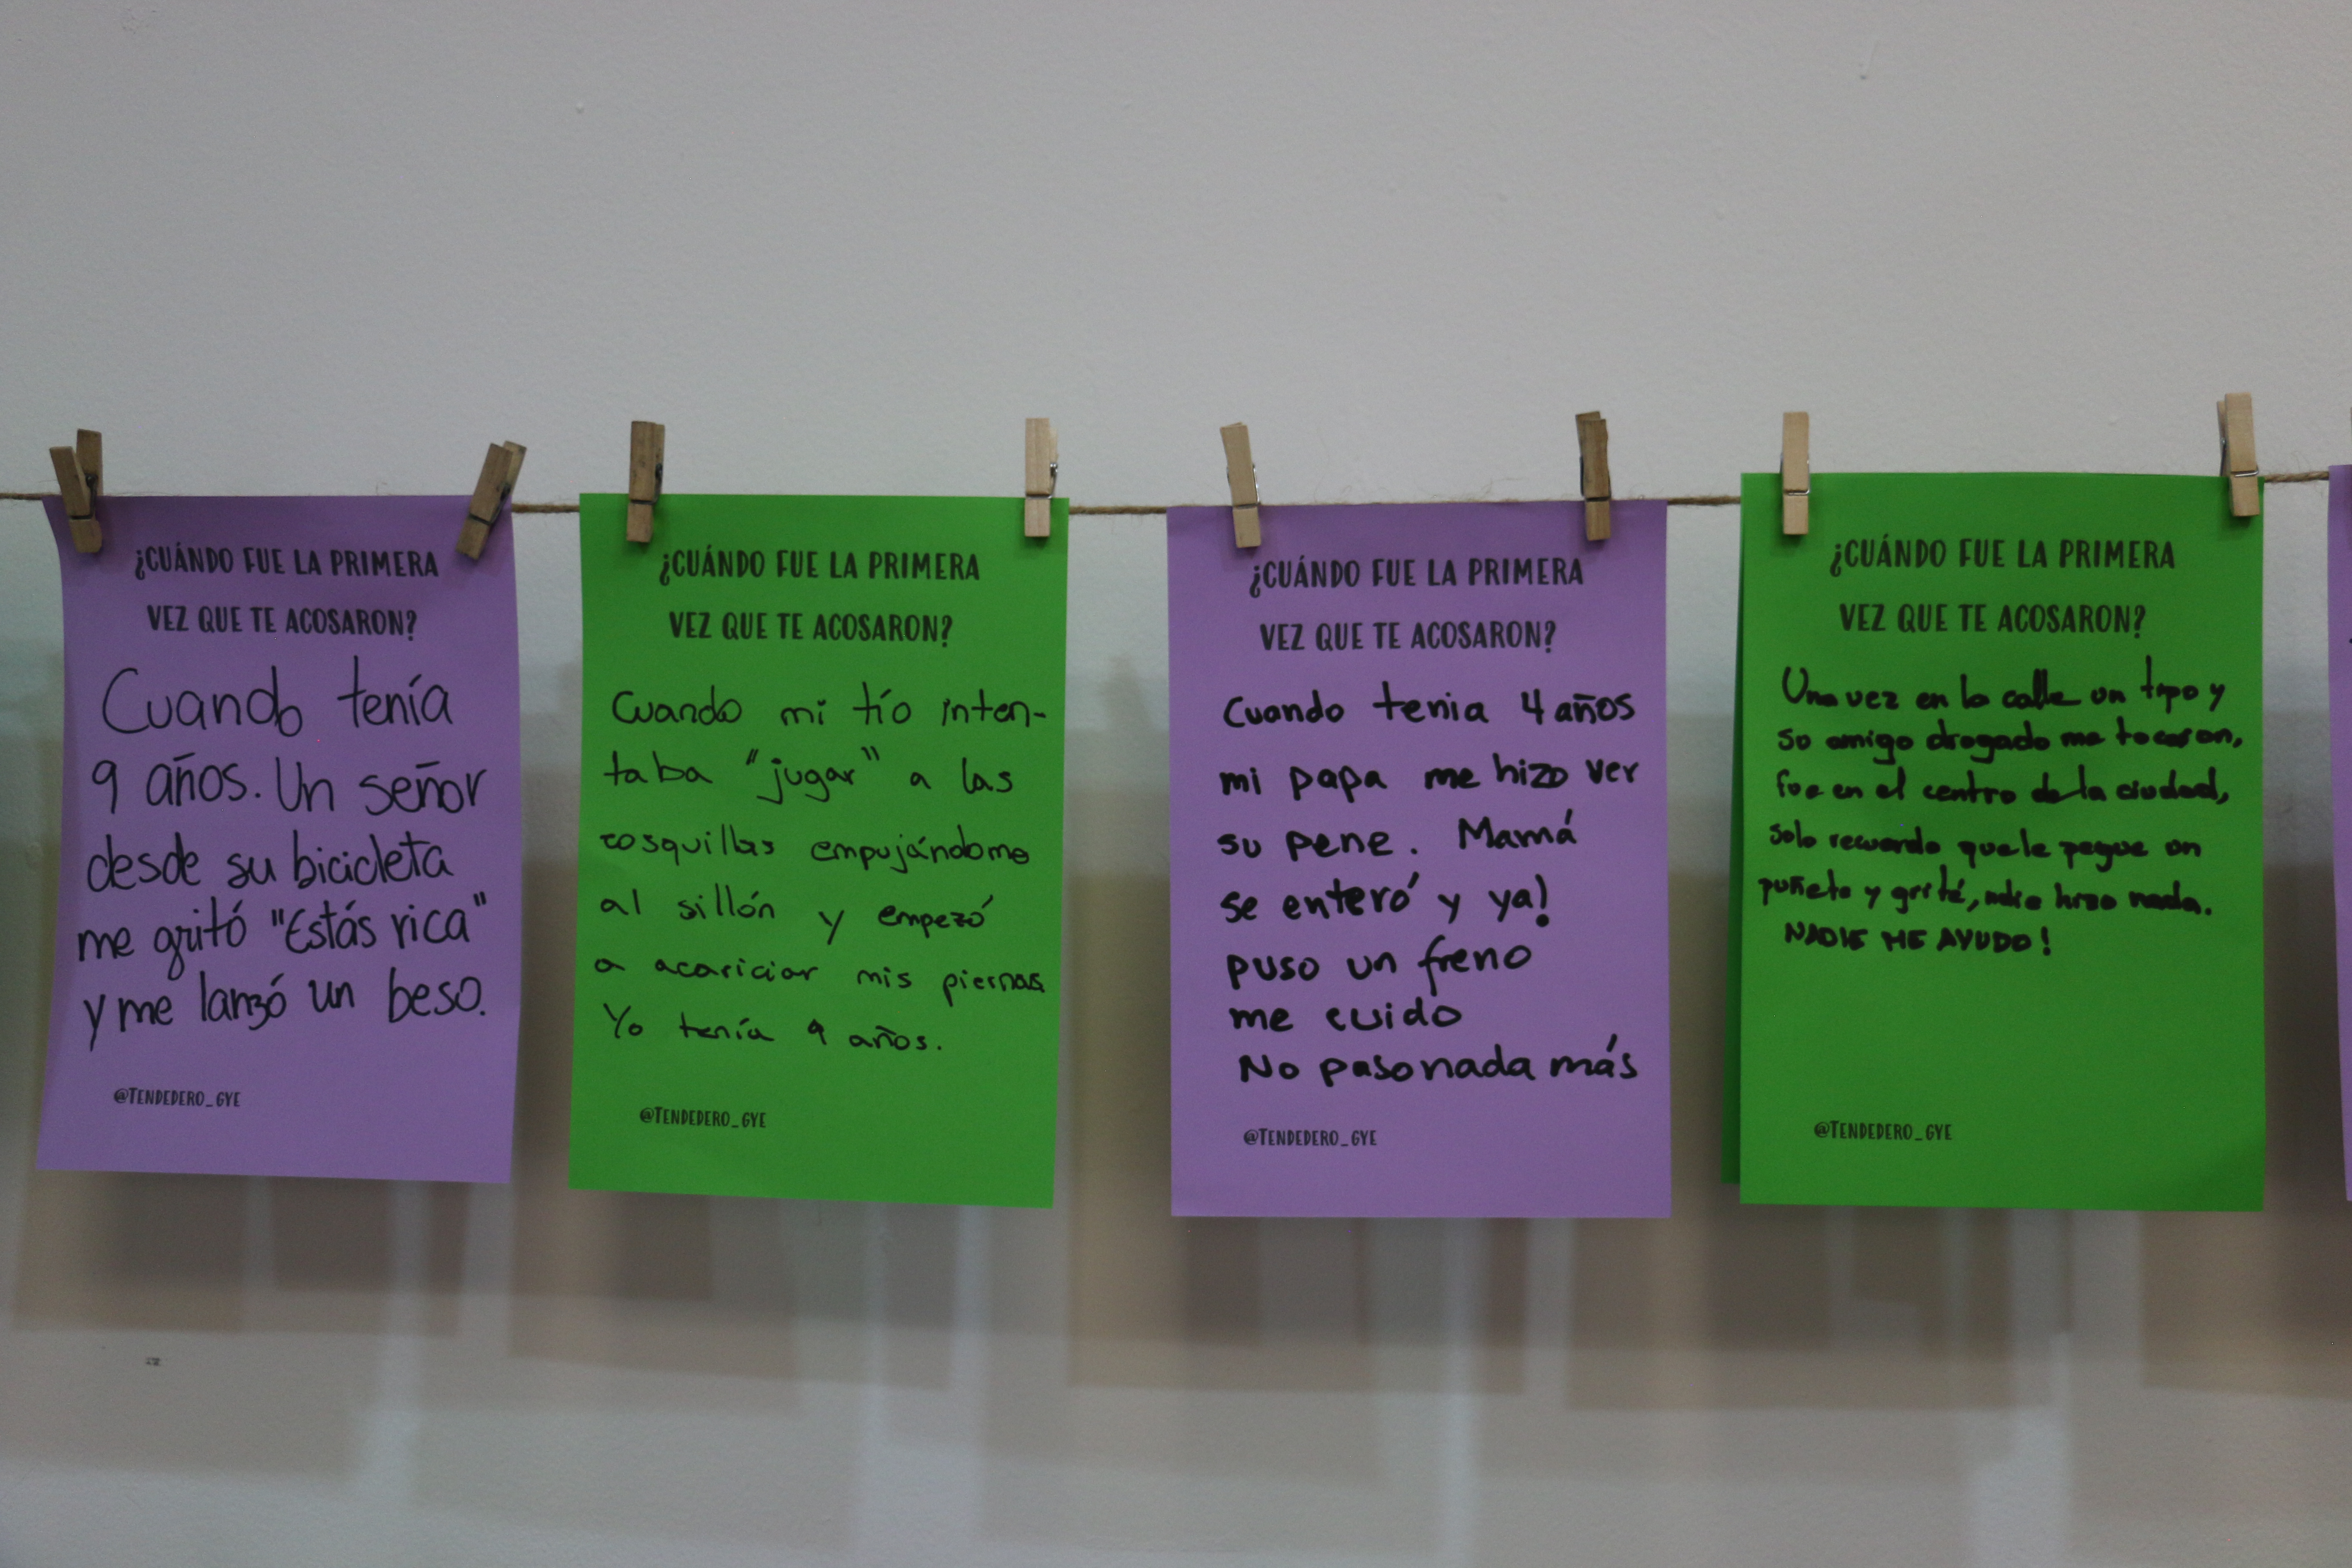 ¿CUÁNDO FUE LA PRIMERA
VEZ QUE TE ACOSARON?
Cuando tenía
9 años. Un señor
desde su bicicleta
me gritó "Estás rica"
y me lanzó un beso.
@TENDEDERO_GYE
¿CUÁNDO FUE LA PRIMERA
VEZ QUE TE ACOSARON?
Cuando mi tío inten-
taba "jugar" a las
cosquillas empujándome
al sillón y empezó
a acariciar mis piernas
Yo tenía 9 años.
@TENDEDERO_GYE
¿CUÁNDO FUE LA PRIMERA
VEZ QUE TE ACOSARON?
Cuando tenia 4 años
mi papa me hizo ver
su pene. Mamá
se enteró y ya!
puso un freno
me cuido
No paso nada más
@TENDEDERO_GYE
¿CUÁNDO FUE LA PRIMERA
VEZ QUE TE ACOSARON?
Una vez en la calle un tipo y
su amigo drogado me tocaron,
fue en el centro de la ciudad,
solo recuerdo que le pegue un
puñete y grité, nadie hizo nada.
NADIE ME AYUDO!
@TENDEDERO_GYE